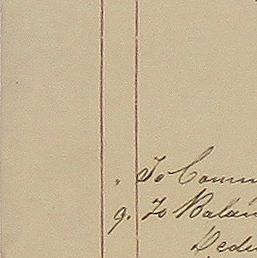 " To Comm
9. To Balan
Dedu